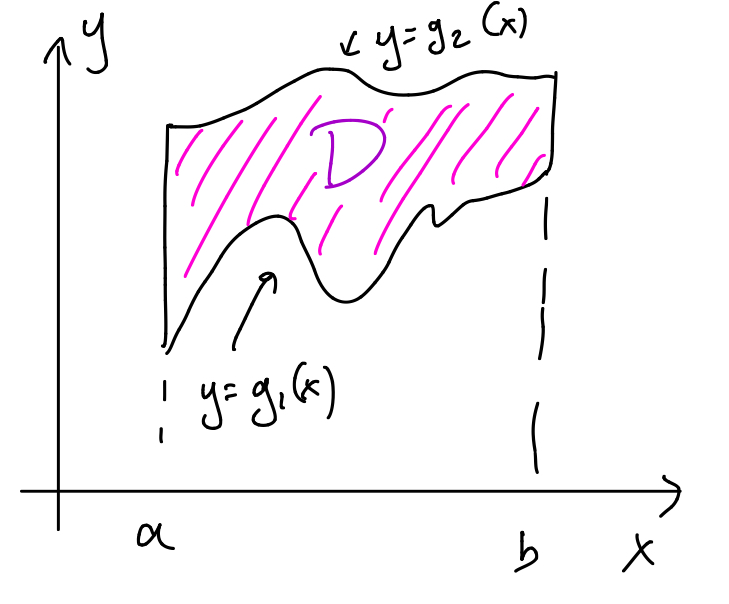 y
y=g₂(x)
D
y=g₁(x)
a
b
x